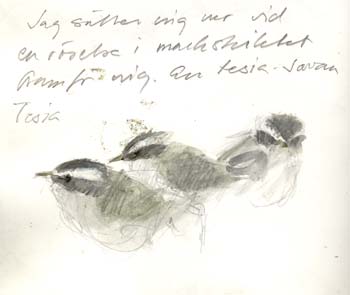 Jag sätter mig ner vid
en rörelse i markskiktet
framför mig. En tesia. Javan
Tesia